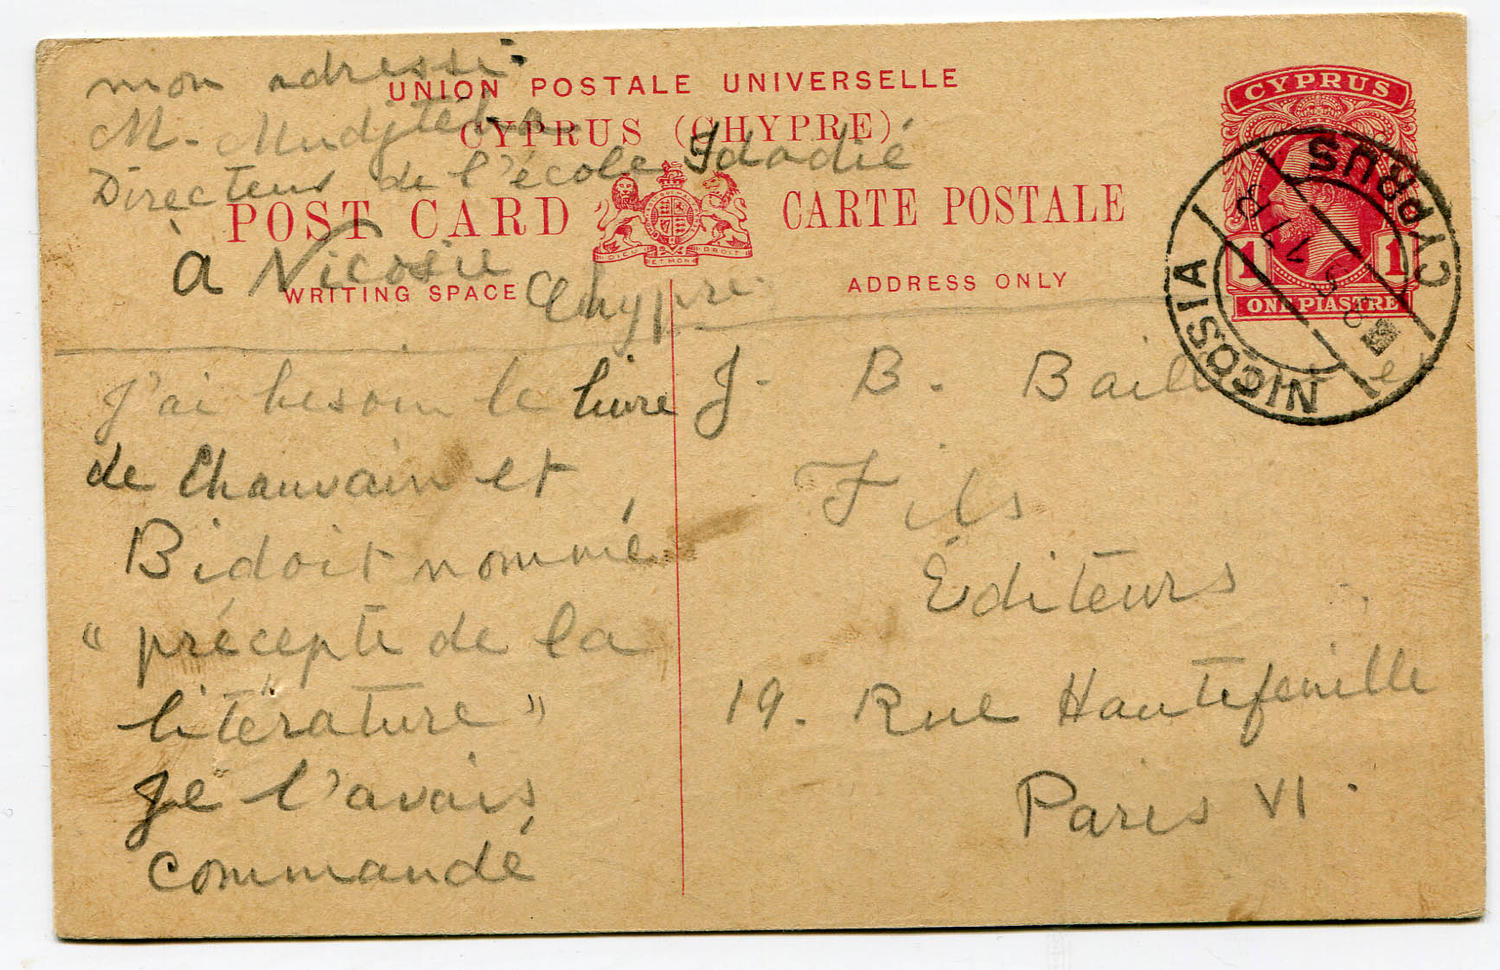 mon adresse:
UNION POSTALE UNIVERSELLE
M. Mudjtéba
CYPRUS (CHYPRE)
Directeur de l'école Idadié
POST CARD
CARTE POSTALE
DIEU ET MON DROIT
à Nicosie
Chypre
WRITING SPACE
ADDRESS ONLY
CYPRUS
1 1
ONE PIASTRE
NICOSIA
CYPRUS
J'ai besoin le livre
de Chauvain et
Bidoit nommé
"précepte de la
literature"
Je l'avais
commandé
J. B. et
Fils
Éditeurs
19. Rue Hautefeuille
Paris VI.